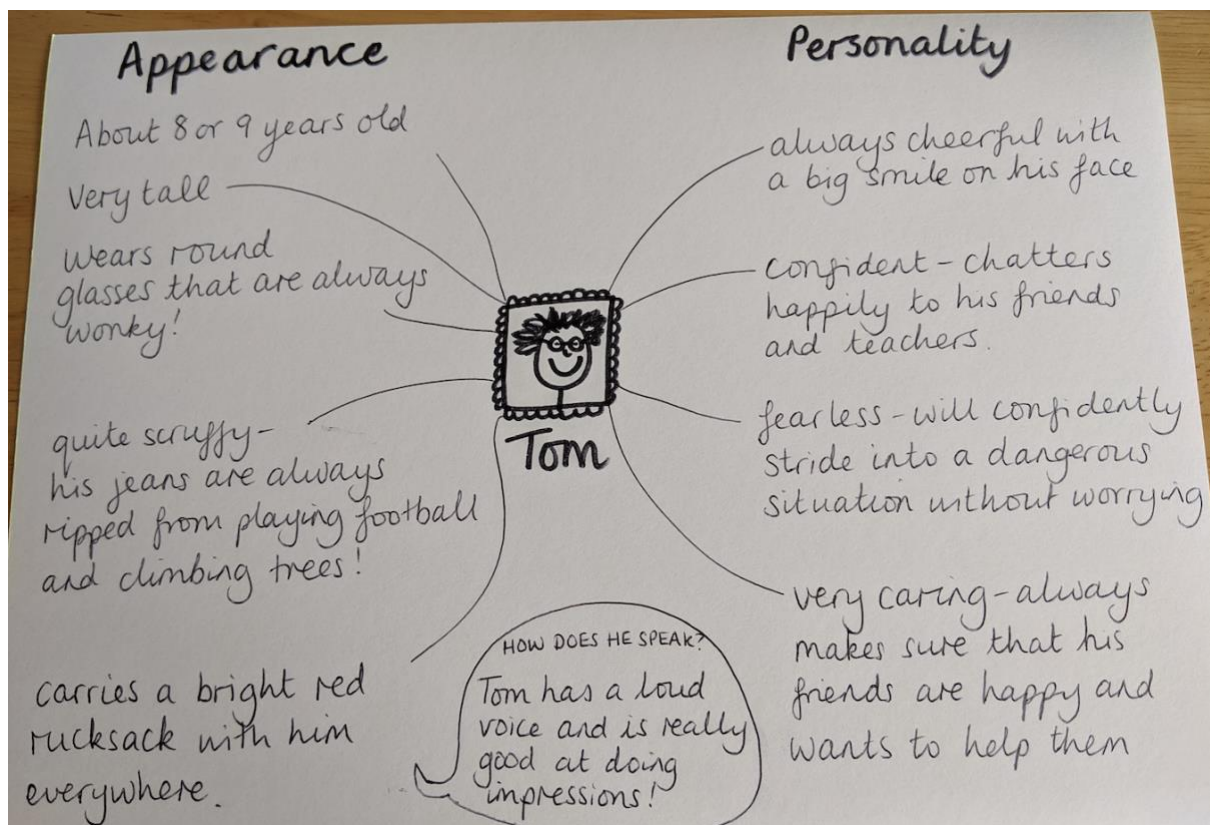 Appearance
About 8 or 9 years old
Very tall
Wears round
glasses that are always
wonky!
quite scruffy-
his jeans are always
ripped from playing football
and climbing trees!
carries a bright red
rucksack with him
everywhere.
Tom
HOW DOES HE SPEAK?
Tom has a loud
voice and is really
good at doing
impressions!
Personality
always cheerful with
a big smile on his face
confident - chatters
happily to his friends
and teachers.
fearless - will confidently
stride into a dangerous
situation without worrying
very caring - always
makes sure that his
friends are happy and
wants to help them